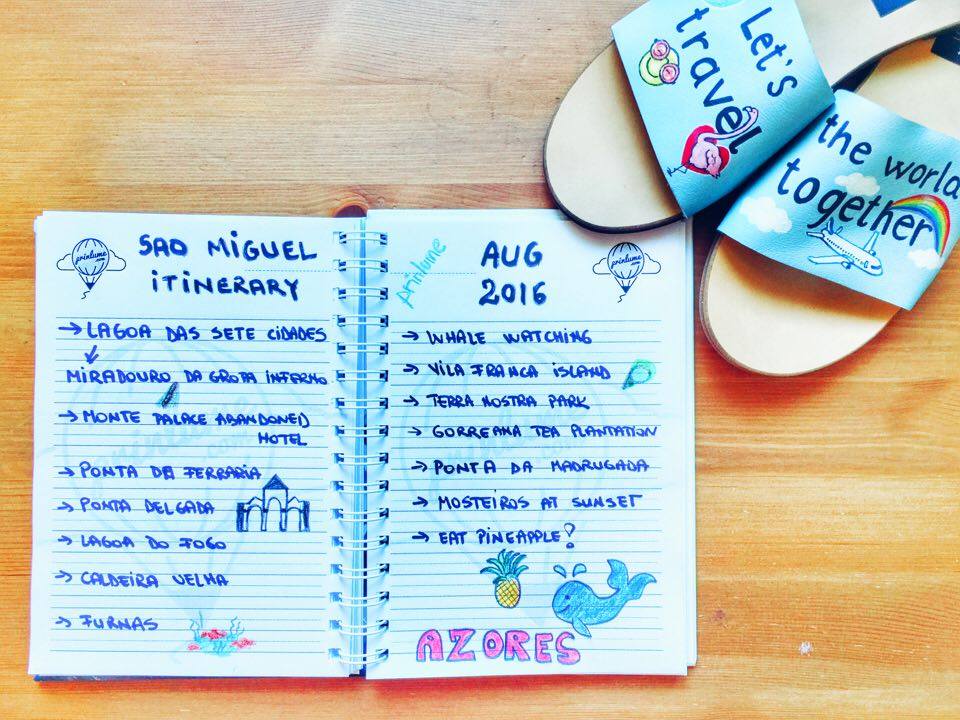 SAO MIGUEL
ITINERARY
printume
.com
→ LAGOA DAS SETE CIDADES
MIRADOURO DA GROTA INFERNO
→ MONTE PALACE ABANDONED
HOTEL
→ PONTA DE FERRARIA
→ PONTA DELGADA
→ LAGOA DO FOGO
→ CALDEIRA VELHA
→ FURNAS
Printume
AUG
2016
printume
.com
→ WHALE WATCHING
→ VILA FRANCA ISLAND
→ TERRA NOSTRA PARK
→ GORREANA TEA PLANTATION
→ PONTA DA MADRUGADA
→ MOSTEIROS AT SUNSET
→ EAT PINEAPPLE!
AZORES
Let's
travel
the world
together